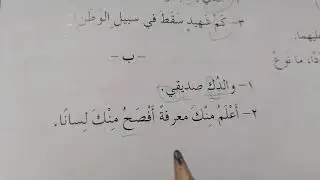 ٣- كَمْ شَهيدٍ سَقَطَ في سبيل الوَطَنِ
- ب -
١- والدُكَ صديقي.
٢- أَعْلَمُ مِنْكَ معرفةً أَفْصَحُ مِنْكَ لِسانًا.